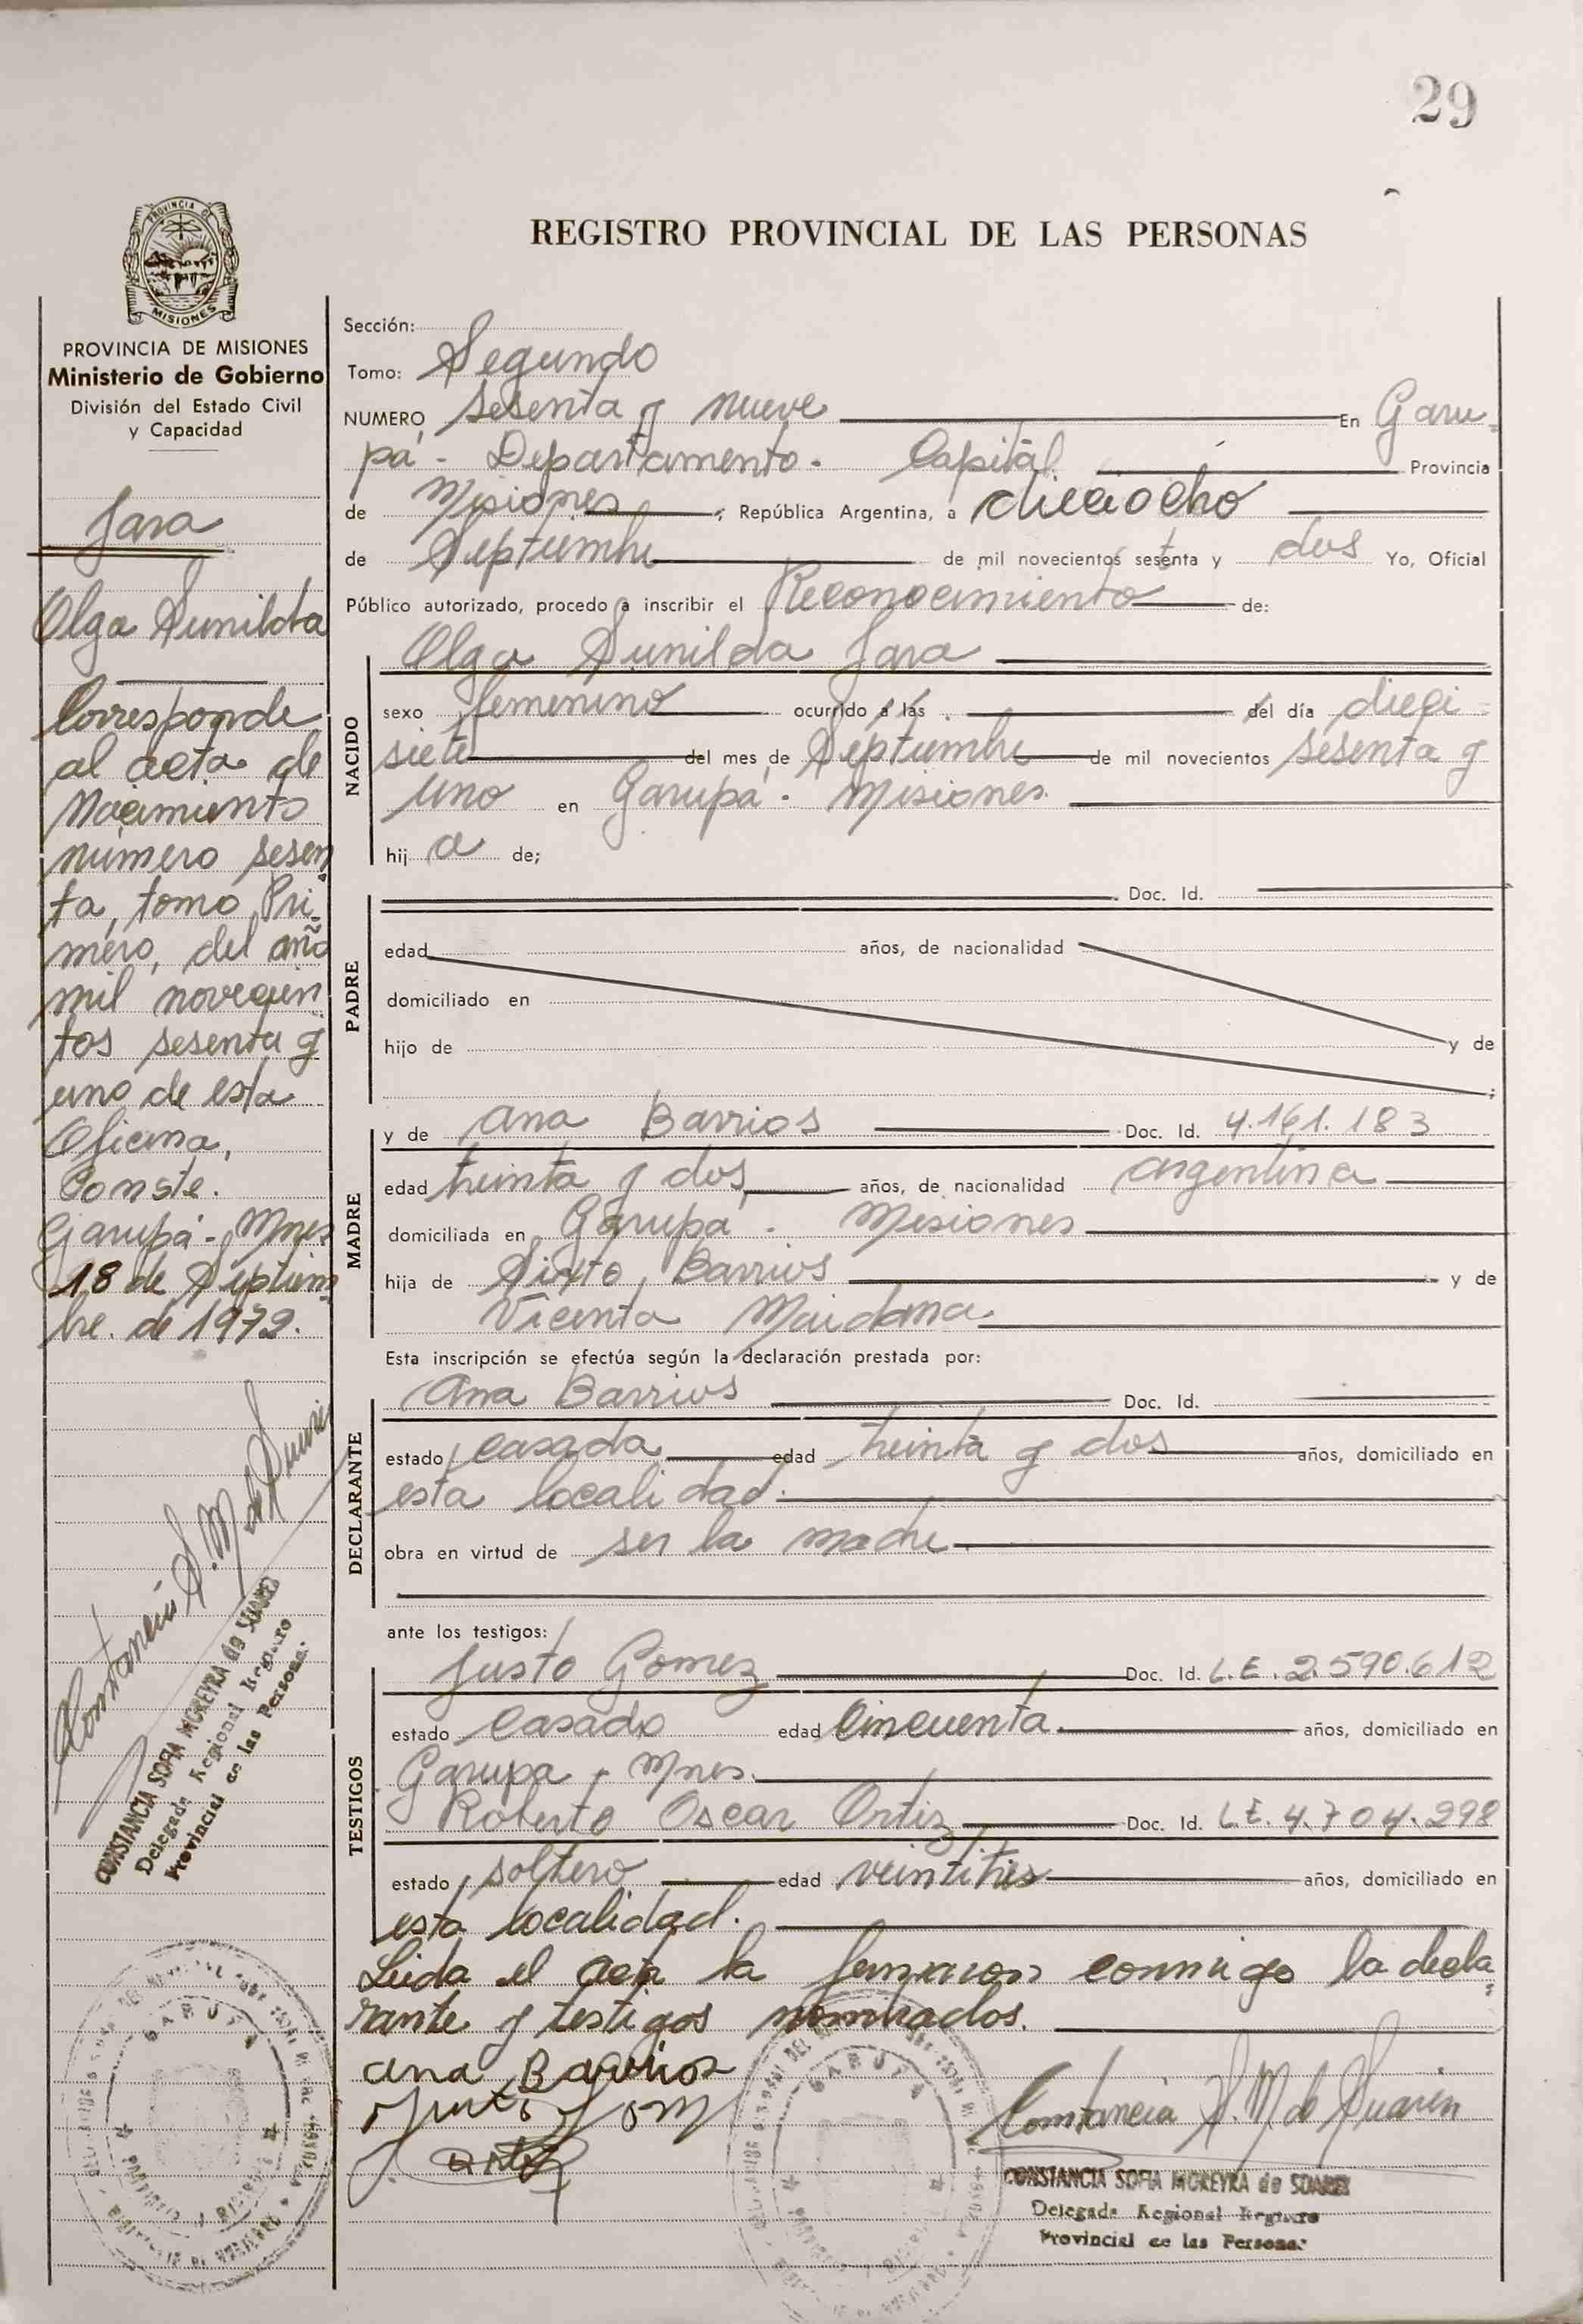 29
REGISTRO PROVINCIAL DE LAS PERSONAS
PROVINCIA DE
MISIONES
PROVINCIA DE MISIONES
Ministerio de Gobierno
División del Estado Civil
y Capacidad
Jara
Olga Sunilda
Corresponde
al acta de
Nacimiento
número sesen
ta, tomo Pri-
mero, del año
mil novecien
tos sesenta y
uno de esta
Oficina,
Conste.
Garupá - Mnes
18 de Septiem
bre. de 1972.
Constancia S. M de Suarez
CONSTANCIA SOFIA MOREYRA de SUAREZ
Delegada Regional Registro
Provincial de las Personas
Sección:
Tomo: Segundo
NUMERO sesenta y nueve En Garu-
pá - Departamento - Capital Provincia
de Misiones ; República Argentina, a dieciocho
de Septiembre de mil novecientos sesenta y dos Yo, Oficial
Público autorizado, procedo a inscribir el Reconocimiento de:
Olga Sunilda Jara
NACIDO
sexo femenino ocurrido a las del día dieci-
siete del mes de Septiembre de mil novecientos sesenta y
uno en Garupá - Misiones.
hij a de;
PADRE
Doc. Id.
edad años, de nacionalidad
domiciliado en
hijo de y de
;
MADRE
y de Ana Barrios Doc. Id. 4.161.183
edad treinta y dos años, de nacionalidad argentina
domiciliada en Garupá - Misiones
hija de Sixto Barrios y de
Vicenta Maidana
Esta inscripción se efectúa según la declaración prestada por:
DECLARANTE
Ana Barrios Doc. Id.
estado casada edad treinta y dos años, domiciliado en
esta localidad.
obra en virtud de ser la madre
ante los testigos:
TESTIGOS
Justo Gomez Doc. Id. L.E. 2.590.612
estado Casado edad Cincuenta. años, domiciliado en
Garupa - Mnes.
Roberto Oscar Ortiz Doc. Id. L.E. 4.704.298
estado soltero edad veintitres años, domiciliado en
esta localidad.
Leida el acta la firmaron conmigo la decla-
rante y testigos nominados.
Ana Barrios
Justo Gom
Ortiz
Constancia S. M. de Suarez
CONSTANCIA SOFIA MOREYRA de SUAREZ
Delegada Regional Registro
Provincial de las Personas
GARUPA
GARUPA